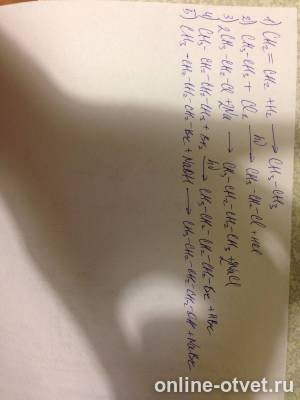 1) CH2 = CH2 + H2 → CH3-CH3
2) CH3-CH3 + Cl2 hν→ CH3-CH2-Cl + HCl
3) 2CH3-CH2-Cl + 2Na → CH3-CH2-CH2-CH3 + 2NaCl
4) CH3-CH2-CH2-CH3 + Br2 hν→ CH3-CH2-CH2-CH2-Br + HBr
5) CH3-CH2-CH2-CH2-Br + NaOH → CH3-CH2-CH2-CH2-OH + NaBr
online-otvet.ru